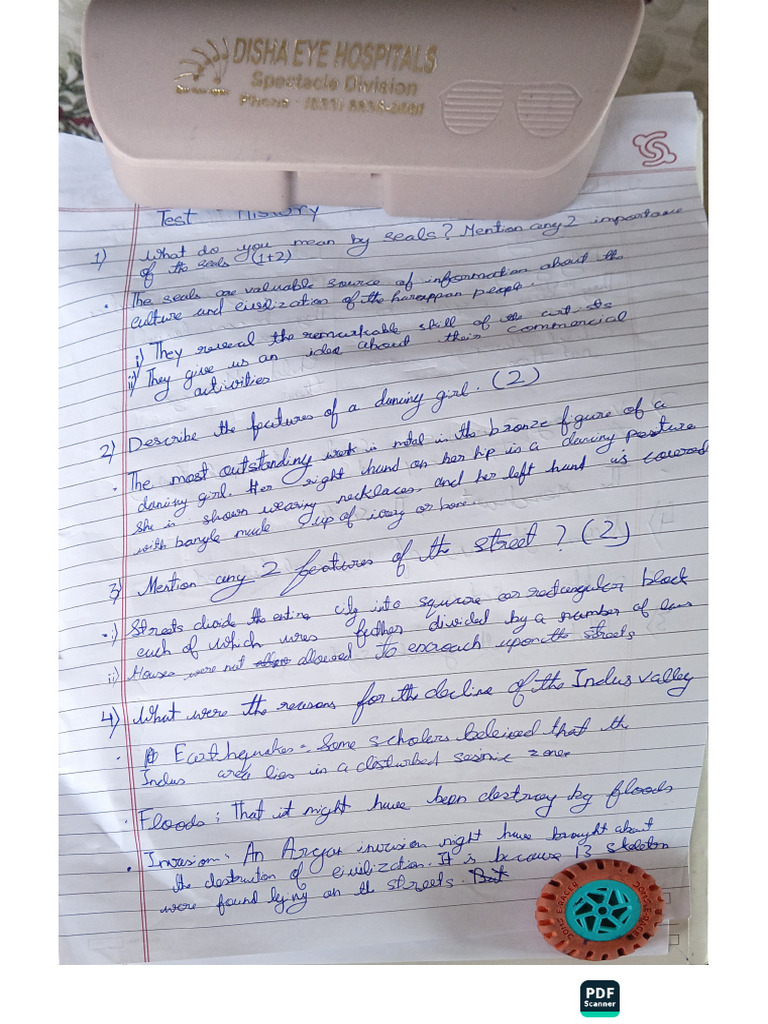 DISHA EYE HOSPITALS
Spectacle Division
Phone : (033)
Test : History
1) What do you mean by seals? Mention any 2 importance
of the seals (1+2)
• The seals are valuable source of information about the
culture and civilization of the harappan people.
i) They reveal the remarkable skill of the
ii) They give us an idea about their commercial
activities
2) Describe the features of a dancing girl. (2)
• The most outstanding work is metal is the bronze figure of a
dancing girl. Her right hand on her hip is a dancing posture
she is shown wearing necklaces and her left hand is covered
with bangle made up of ivory or bone.
3) Mention any 2 features of the street? (2)
• i) Streets divide the entire city into square or rectangular block
each of which wires futher divided by a number of
ii) Houses were not allowed to encroach upon the streets
4) What were the reasons for the decline of the Indus valley
• Earthquakes - Some scholars beleived that the
Indus area lies in a disturbed seismic zone.
• Floods : That it might have been destroy by floods
• Invasion : An Aryan invasion might have brought about
the destruction of civilization. It is because 13 skeleton
were found lying on the streets. But
JOHS E-RACER
PDF
Scanner